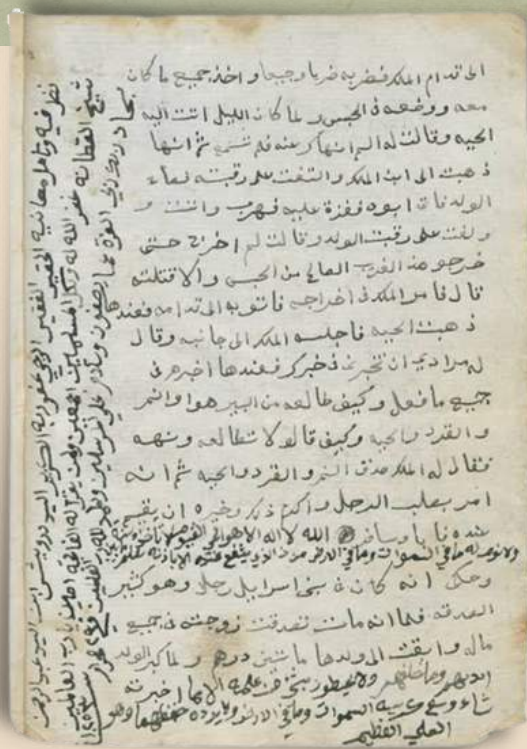 الى قدام الملك فضربه ضربا وجيعا واخذ جميع ما كان
معه ووضعه في الحبس ولما كان الليل اتت اليه
الحيه وقالت له الم انهاك عنه ثم انها
ذهبت الى ابن الملك والتفت على رقبته
الولد ابوه عليه فهرب واتت و
ولفت على رقبت الولد وقالت لم اخرج حتى
تخرجو هذا الغريب من الحبس والا قتلته
قال فامر الملك في اخراجه فاتو به الى قدامه فعندها
ذهبت الحيه فاجلسه الملك الى جانبه وقال
له مرادي ان تخبرني في خبرك فعندها اخبره في
جميع ما فعل وكيف طالعه من البير هوا والنمر
والقرد والحيه وكيف قالو لا تطالعه
فقال له الملك صدق النمر والقرد والحيه ثم انه
امر بصلب الرجل واكرم وخيره ان يقيم
عنده يا وسافر الله لا اله الا هو الحي القيوم لا تاخذه سنة
ولا نوم له ما في السموات وما في الارض من ذا الذي يشفع عنده الا باذنه يعلم
وحكي انه كان في بني اسرايل رجل وهو كثير
الصدقه فلما انه مات تصدقت زوجته في جميع
ماله وابقت الى ولدها مايتين درهم ولما كبر الولد
ايديهم وما خلفهم ولا يحيطون بشي من علمه الا بما اخبرته
شاء وسع كرسيه السموات والارض ولا يوده حفظهما وهو
العلي العظيم
نظر فيه وتامل معانيه الحقير الفقير الى عفو ربه القدير السيد درويش ابن السيد عبد الرحمن
شيخ القطانه غفر الله له ولكل المسلمين اجمعين ولمن يقرا له الفاتحه امين يا رب العالمين
سبحان ربك رب العزة عما يصفون وسلام على المرسلين والحمد لله رب العالمين